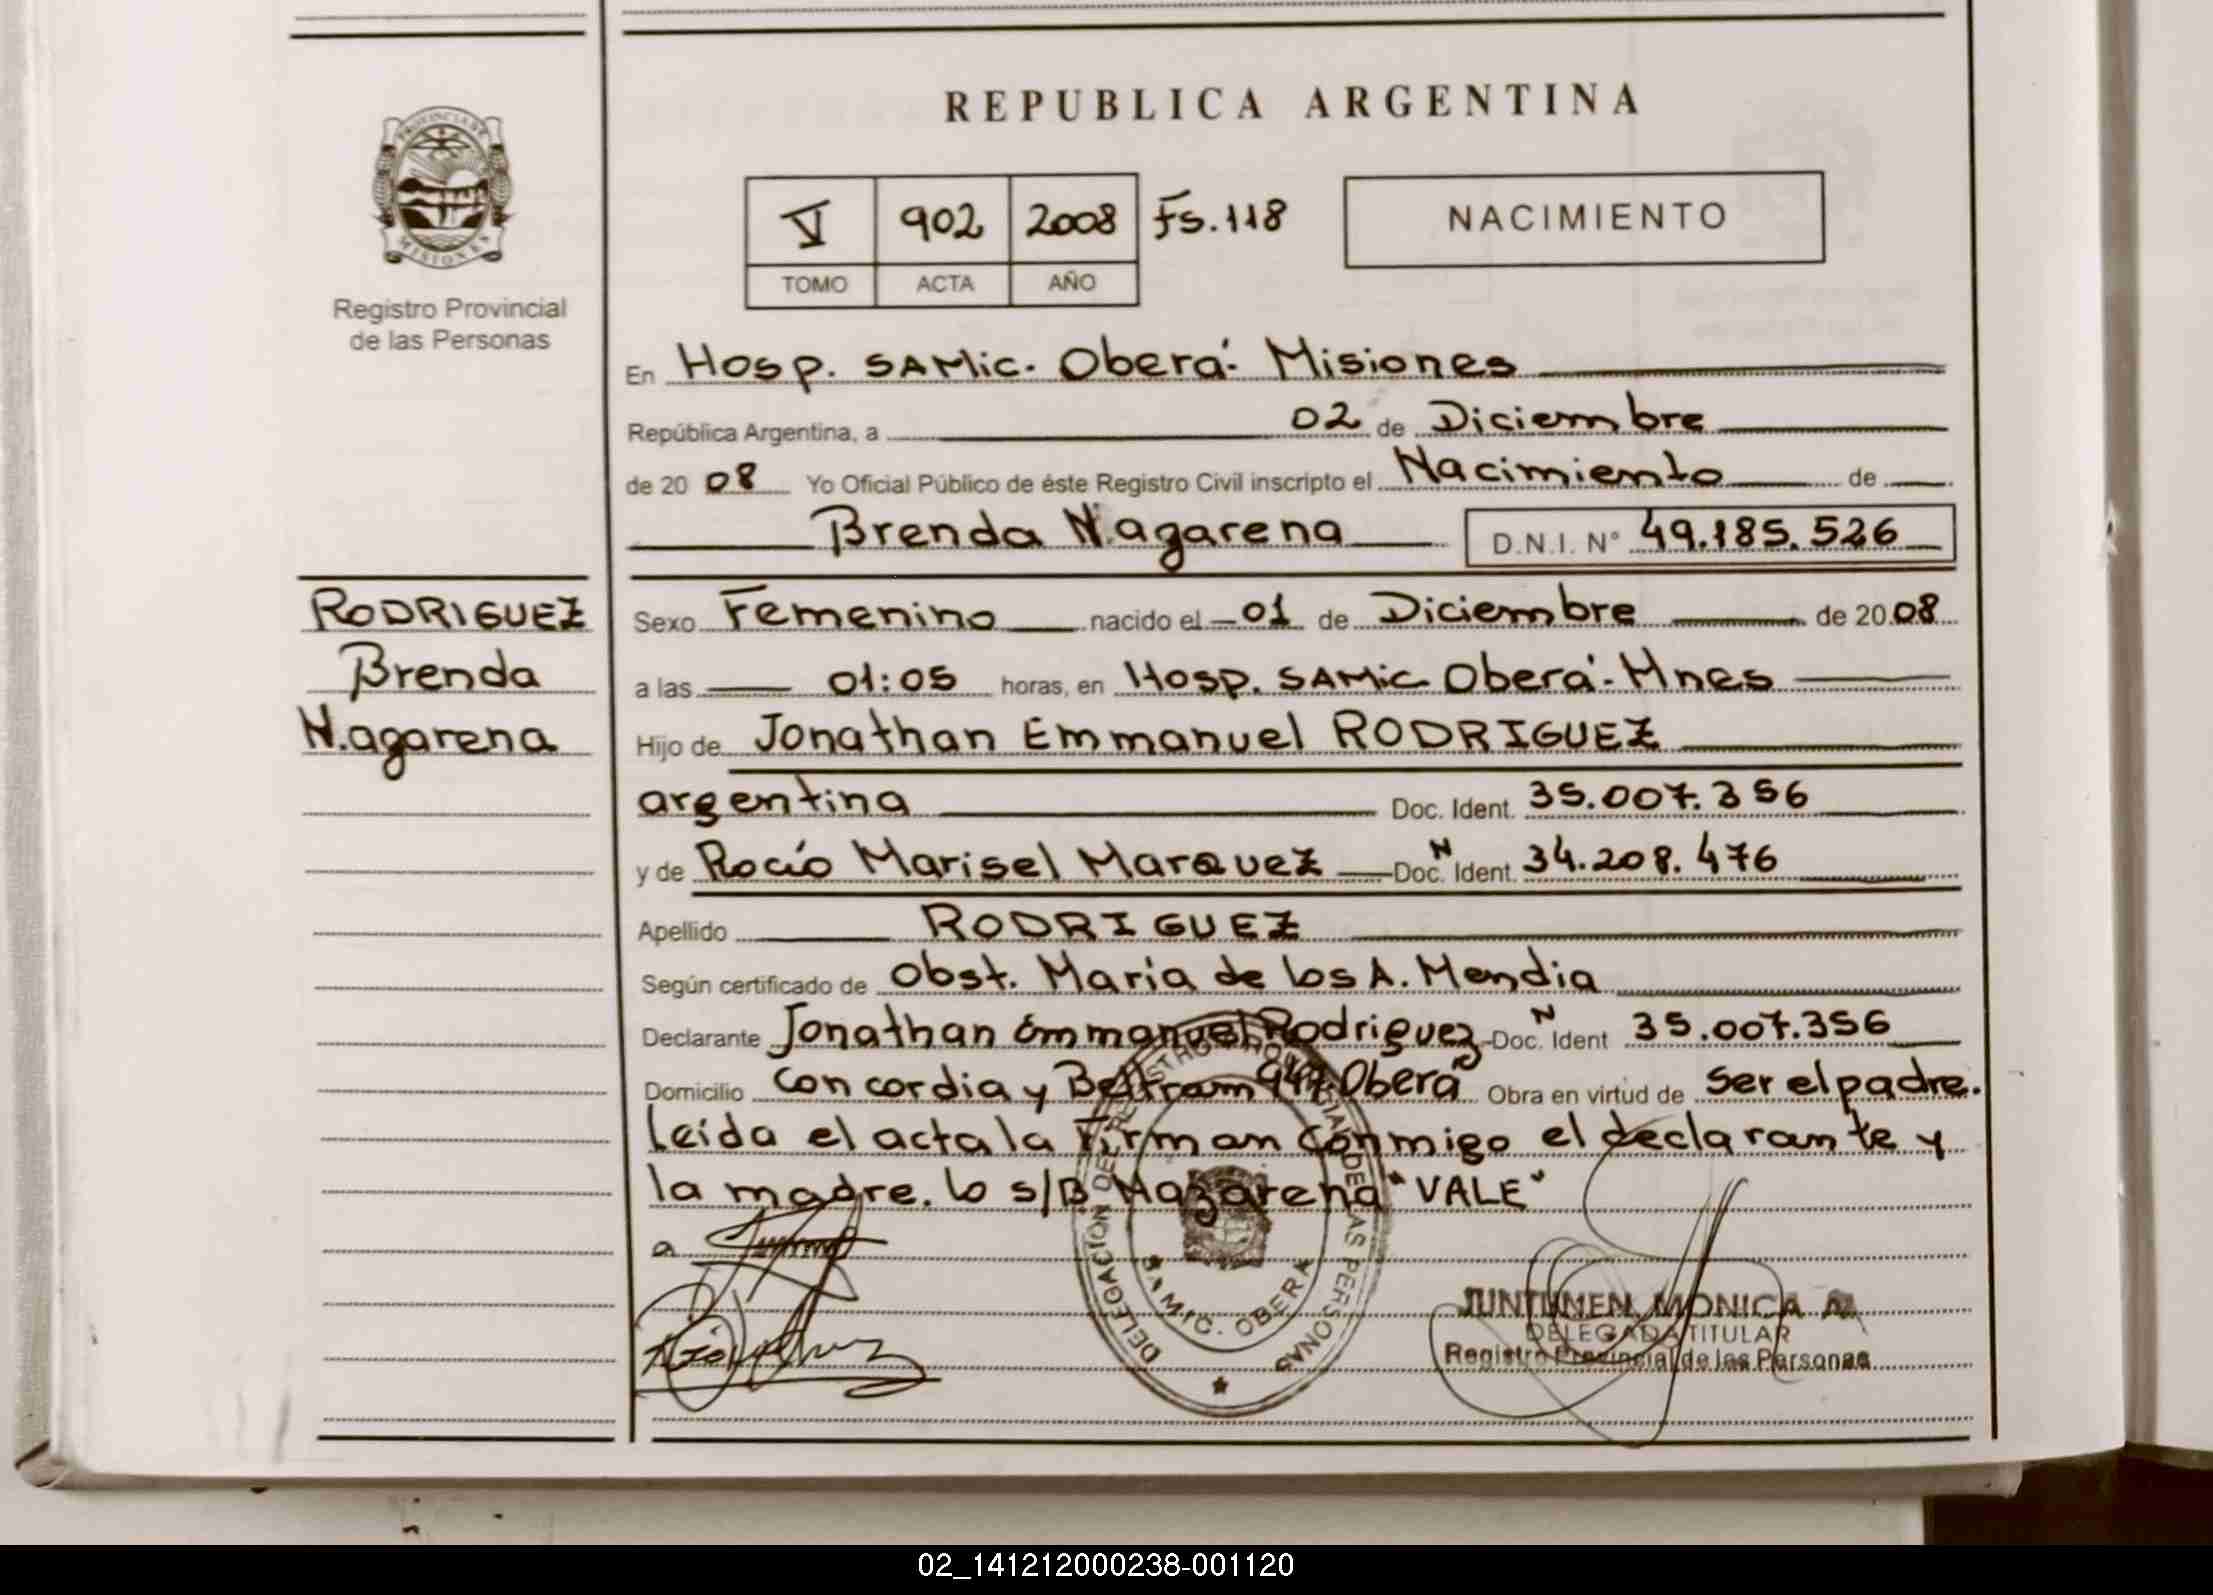 REPUBLICA ARGENTINA
PROVINCIA DE
MISIONES
Registro Provincial
de las Personas
V 902 2008 Fs.118
TOMO ACTA AÑO
NACIMIENTO
En Hosp. SAMic. Oberá- Misiones
República Argentina, a 02 de Diciembre
de 20 08 Yo Oficial Público de éste Registro Civil inscripto el Nacimiento de
Brenda N.agarena D.N.I. N° 49.185.526
RODRIGUEZ
Brenda
N.agarena
Sexo Femenino nacido el 01 de Diciembre de 20 08
a las 01:05 horas, en Hosp. SAMic Oberá- Mnes
Hijo de Jonathan Emmanuel RODRIGUEZ
argentina Doc. Ident. 35.007.356
y de Rocío Marisel Marquez Doc. N Ident. 34.208.476
Apellido RODRIGUEZ
Según certificado de Obst. María de los A. Mendia
Declarante Jonathan Emmanuel Rodriguez Doc. N Ident 35.007.356
Domicilio Concordia y Beltram 947. Oberá Obra en virtud de ser el padre.
Leída el acta la firman conmigo el declarante y
la madre. lo s/B Nazarena "VALE"
DELEGACION DEL REGISTRO PROVINCIAL DE LAS PERSONAS
SAMIC. OBERA
MONICA
DELEGADA TITULAR
Registro Provincial de las Personas
02_141212000238-001120